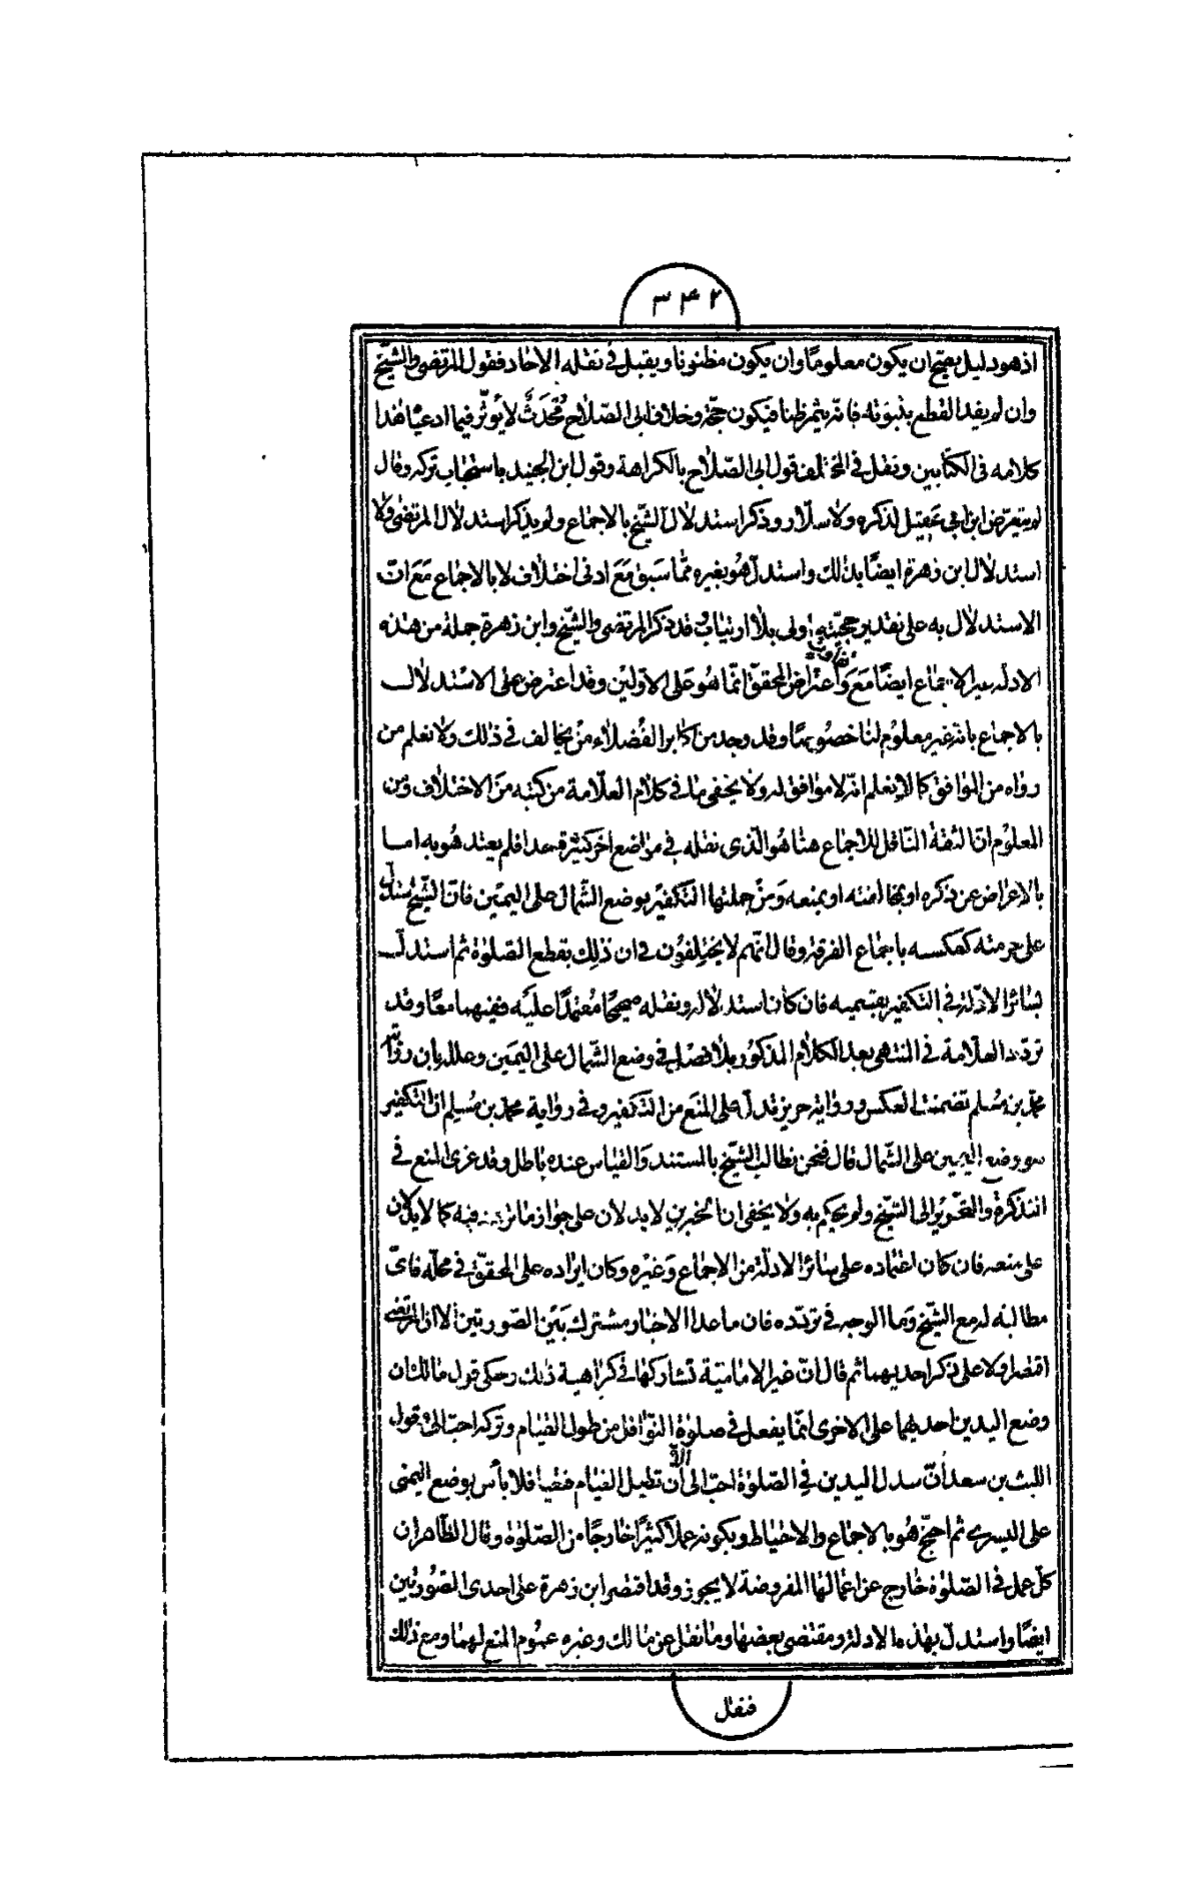 ٣٤٢
اذ هو دليل يصح ان يكون معلومًا وان يكون مظنونا ويقبل في نقله الاحاد فقول المرتضى والشيخ
وان لم يفد القطع بثبوته فانه يثمر ظنا فيكون حجة وخلاف ابي الصلاح مُحْدَثٌ لا يؤثر فيما ادعيناه هذا
كلامه في الكتابين ونقل في المختلف قول ابي الصّلاح بالكراهة وقول ابن الجنيد باستحباب تركه وقال
لم يتعرض ابن ابي عقيل لذكره ولا سلّار وذكر استدلال الشيخ بالاجماع ولم يذكر استدلال المرتضى ولا
استدلال ابن زهرة ايضًا بذلك واستدلّ هو بغيره ممّا سبق مَعَ ادنى اختلاف لا بالاجماع مَعَ انّ
الاستدلال به على تقدير حجيّته اولى بلا ارتياب وقد ذكر المرتضى والشيخ وابن زهرة جملة من هذه
الادلة غير الاجماع ايضًا مَعَ واعتراض المحقق انّما هُوَ عَلى الاوّلين وقد اعترض على الاستدلال
بالاجماع بانه غير معلوم لنا خصُوصًا وقد وجد من اكابر الفُضلاء من يخالف في ذلك ولا نعلم من
رواه من الموافق كما لا نعلم انّه لا موافق له ولا يخفى ما في كلام العلّامة من كتبه مِنَ الاختلاف ومن
المعلوم انّ الثقة الناقل للاجماع هنا هُو الّذى نقله في مواضع اخر كثيرة جدا فلم يعتد هُو به امـا
بالاعراض عن ذكره او بمخالفته او بمنعه وَمِنْ جملتها التكفير بوضع الشّمال على اليمين فانّ الشّيخ استدلّ
على حرمته كعكسه باجماع الفرقة وقال انّهم لا يختلفون في ان ذلك يقطع الصلوٰة ثم استدلّ
بسائر الادّلة في التكفير بقسميه فان كان استدلاله ونقله صحيحًا مُعتمدًا عليه ففيهما معًا وقد
تردّد العلّامة في المنتهى بعد الكلام المذكور بلا فصل في وضع الشّمال على اليمين وعلله بان رواية
محمّد بن مُسلم تضمنت العكس ورواية حريز تدلّ على المنع من التكفير وفي رواية محمّد بن مُسلم انّ التكفير
هو وضع اليمين على الشّمال قال فنحن نطالب الشّيخ بالمستند والقياس عنده باطل وقد عزى المنع في
التذكرة والتحرير الى الشيخ ولم يحكم به ولا يخفى ان الخبرين لا يدلان على جواز ما فيه كما لا يدلان
على منعه فان كان اعتماده على سائر الادلّة من الاجماع وَغيْره وكان ايراده على المحقّق في محلّه فايّ
مطالبة له مع الشيخ وَما الوجه في تردّده فان ما عدا الاخبار مشترك بَيْن الصّورتين الّا ان المرتضى
اقتصر اولا على ذكر احديهما ثم قال انّ غير الاماميّة تشاركها في كراهية ذلك وحكى قول مالك ان
وضع اليدين احديهما على الاخرى انّما يفعل في صلوٰة النوافل من طول القيام وتركه احبّ اليّ وقول
الليث بن سعد انّ سدل اليدين في الصّلوة احبّ الى الّا ان تطيل القيام فتعيا فلا بأس بوضع اليمنى
على اليسرى ثم احتجّ هُو بالاجماع والاحتياط وبكونه عملا كثيرًا خارجًا من الصّلوة وقال الظّاهر ان
كلّ عمل في الصّلوة خارج عن اعمالها المفروضة لا يجوز وقد اقتصر ابن زهرة على احدى الصُّورتين
ايضًا واستدلّ بهذه الادلة ومقتضى بعضها وما نقل عن مالك وغيره عمُوم المنع لهما ومع ذلك
فنقل